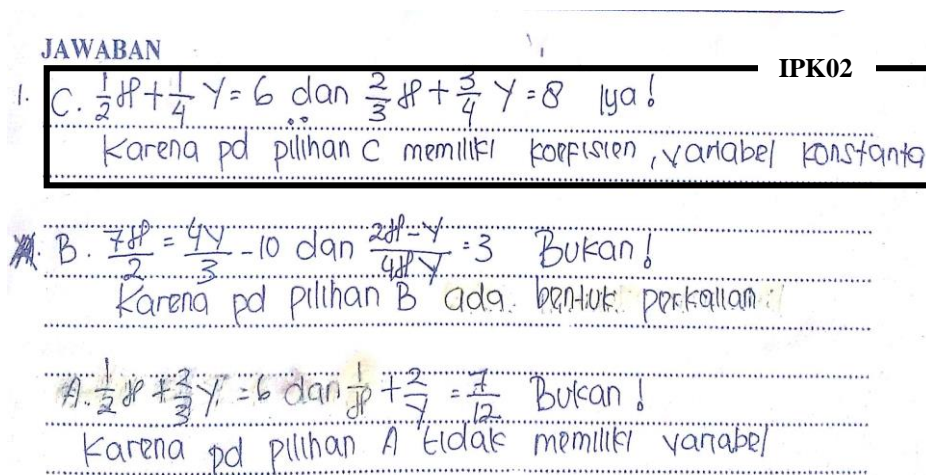 JAWABAN
IPK02
1. C. 1/2 x + 1/4 y = 6 dan 2/3 x + 3/4 y = 8 Iya!
Karena pd pilihan C memiliki koefisien, variabel konstanta
B. 7x/2 = 4y/3 - 10 dan 2x-y/4xy = 3 Bukan!
Karena pd pilihan B ada bentuk perkalian
A. 1/2 x + 2/3 y = 6 dan 1/x + 2/y = 7/12 Bukan!
Karena pd pilihan A tidak memiliki variabel